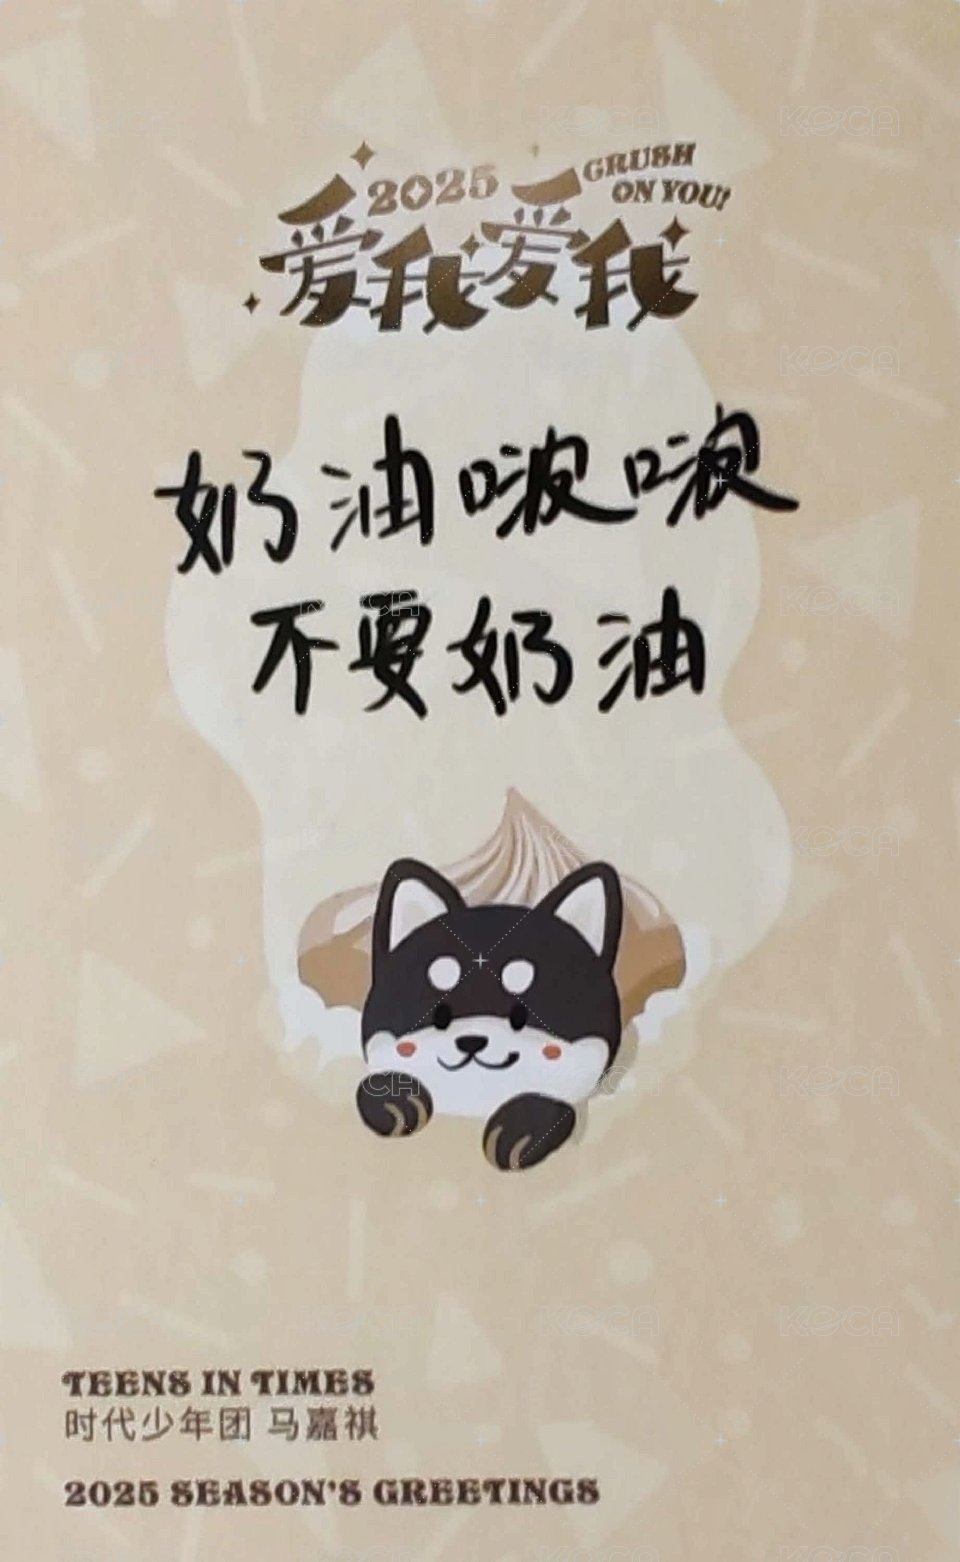 2025
CRUSH
ON YOU!
爱我爱我
奶油啵啵
不要奶油
TEENS IN TIMES
时代少年团 马嘉祺
2025 SEASON'S GREETINGS
KOCA